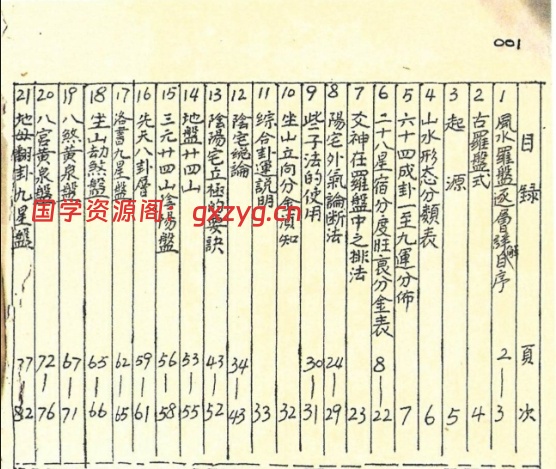 001
目录 頁次
1 風水羅盤逐層詳解自序 2—3
2 古羅盤式 4
3 起源 5
4 山水形态分類表 6
5 六十四成卦一至九運分佈 7
6 二十八星宿分度旺衰分金表 8—22
7 爻神在羅盤中之排法 23
8 陽宅外氣論断法 24—29
9 些子法的使用 30—31
10 坐山立向分金須知 32
11 綜合卦運説明 33
12 陰宅總論 34—43
13 陰陽宅立極的要訣 43—52
14 地盤廿四山 53—55
15 三元廿四山陰陽盤 56—58
16 先天八卦層 59—61
17 洛書九星盤 62—65
18 坐山劫煞盤 65—66
19 八煞黄泉盤 67—71
20 八宫黄泉盤 72—76
21 地母翻卦九星盤 77—82
国学资源阁：gxzyg.cn